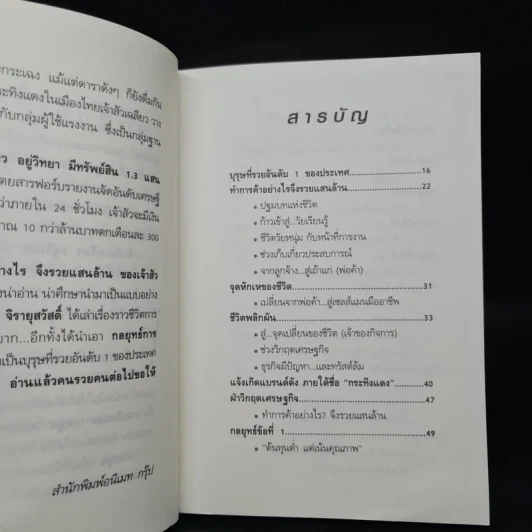 กระเฉง แม้แต่ดาราดังๆ ก็ยังดื่มกัน
ระทิงแดงในเมืองไทยเจ้าสัวเฉลียว วาง
กับกลุ่มผู้ใช้แรงงาน ซึ่งเป็นกลุ่มฐาน
ว อยู่วิทยา มีทรัพย์สิน 1.3 แสน
ตยสารฟอร์บรายงานจัดอันดับเศรษฐี
ว่าภายใน 24 ชั่วโมง เจ้าสัวจะมีเงิน
าณ 10 กว่าล้านบาทตกเดือนละ 300
างไร จึงรวยแสนล้าน ของเจ้าสัว
งน่าอ่าน น่าศึกษานำมาเป็นแบบอย่าง
จิรายุสวัสดิ์ ได้เล่าเรื่องราวชีวิตการ
บาก...อีกทั้งได้นำเอา กลยุทธ์การ
งเป็นบุรุษที่รวยอันดับ 1 ของประเทศ
อ่านแล้วคนรวยคนต่อไปขอให้
สำนักพิมพ์อนิเมท กรุ๊ป
สารบัญ
บุรุษที่รวยอันดับ 1 ของประเทศ 16
ทำการค้าอย่างไรจึงรวยแสนล้าน 22
• ปฐมบทแห่งชีวิต
• ก้าวเข้าสู่...วัยเรียนรู้
• ชีวิตวัยหนุ่ม กับหน้าที่การงาน
• ช่วงเก็บเกี่ยวประสบการณ์
• จากลูกจ้าง...สู่เถ้าแก่ (พ่อค้า)
จุดหักเหของชีวิต 31
• เปลี่ยนจากพ่อค้า...สู่เซลส์แมนมืออาชีพ
ชีวิตพลิกผัน 33
• สู่...จุดเปลี่ยนของชีวิต (เจ้าของกิจการ)
• ช่วงวิกฤตเศรษฐกิจ
• ธุรกิจมีปัญหา...และทรัสต์ล้ม
แจ้งเกิดแบรนด์ดัง ภายใต้ชื่อ "กระทิงแดง" 40
ฝ่าวิกฤตเศรษฐกิจ 47
• ทำการค้าอย่างไร? จึงรวยแสนล้าน
กลยุทธ์ข้อที่ 1 49
• "ต้นทุนต่ำ แต่เน้นคุณภาพ"